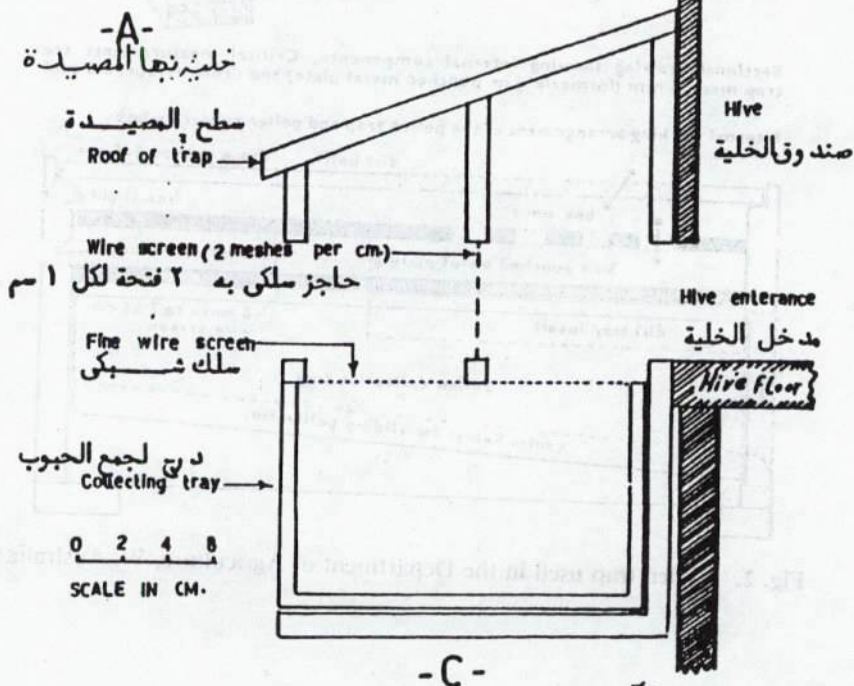 -A-
خلية بها المصيدة
سطح المصيدة
Roof of trap
Hive
صندوق الخلية
Wire screen (2 meshes per cm.)
حاجز سلكى به ٢ فتحة لكل ١ سم
Hive enterance
مدخل الخلية
Fine wire screen
سلك شبكى
Hive Floor
درج لجمع الحبوب
Collecting tray
0 2 4 6 8
SCALE IN CM.
-C-